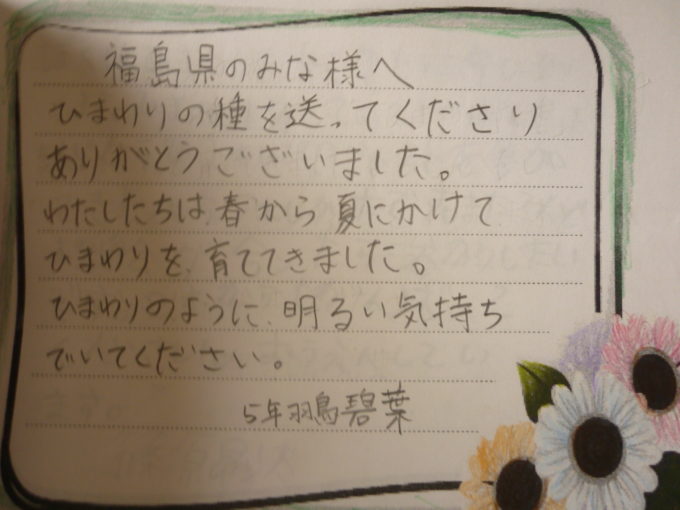 福島県のみな様へ
ひまわりの種を送ってくださり
ありがとうございました。
わたしたちは、春から夏にかけて
ひまわりを、育ててきました。
ひまわりのように、明るい気持ち
でいてください。
5年羽鳥碧葉